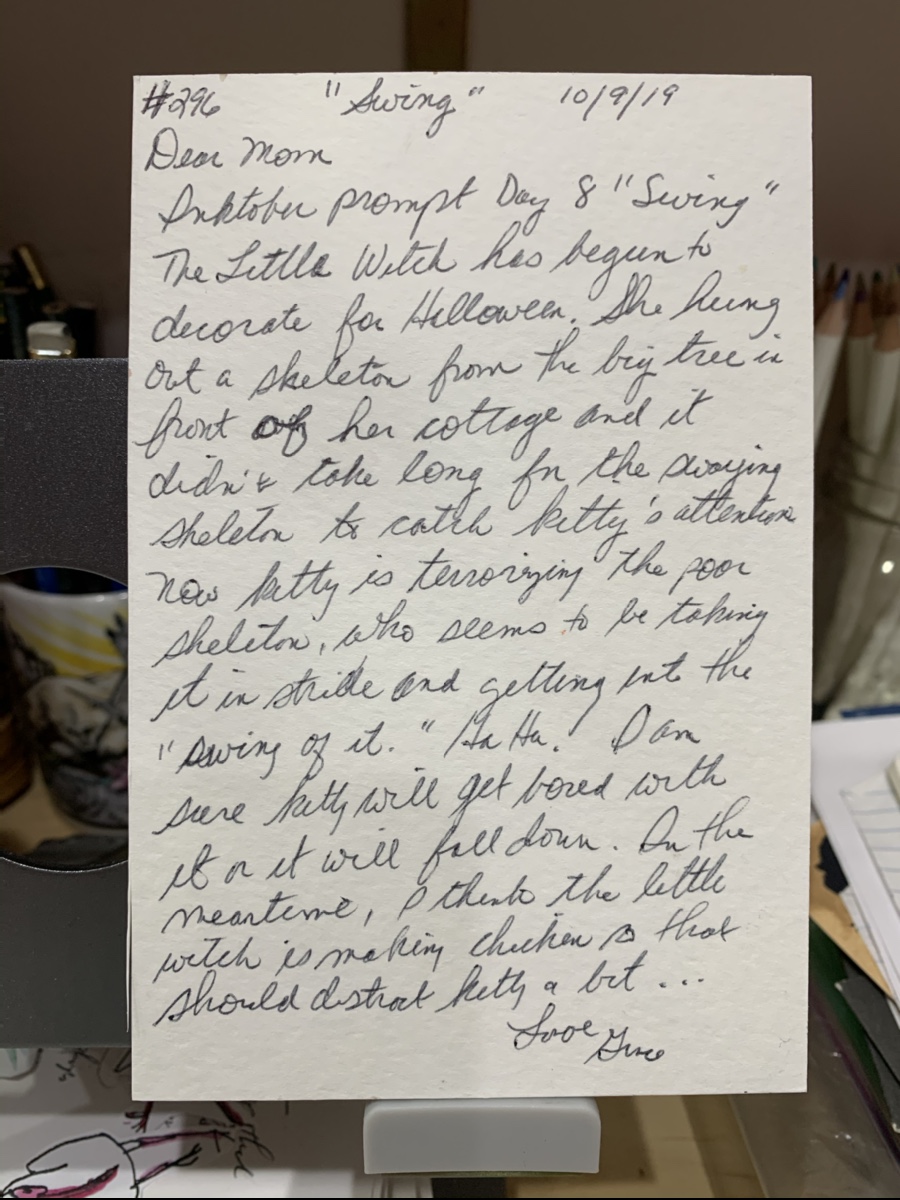 #296 "Swing" 10/9/19
Dear Mom
Inktober prompt Day 8 "Swing"
The Little Witch has begun to
decorate for Halloween. She hung
out a skeleton from the big tree in
front of her cottage and it
didn't take long for the swaying
skeleton to catch kitty's attention
now kitty is terrorizing the poor
skeleton, who seems to be taking
it in stride and getting into the
"swing of it." Ha Ha! I am
sure kitty will get bored with
it or it will fall down. In the
meantime, I think the little
witch is making chicken so that
should distract kitty a bit ...
Love